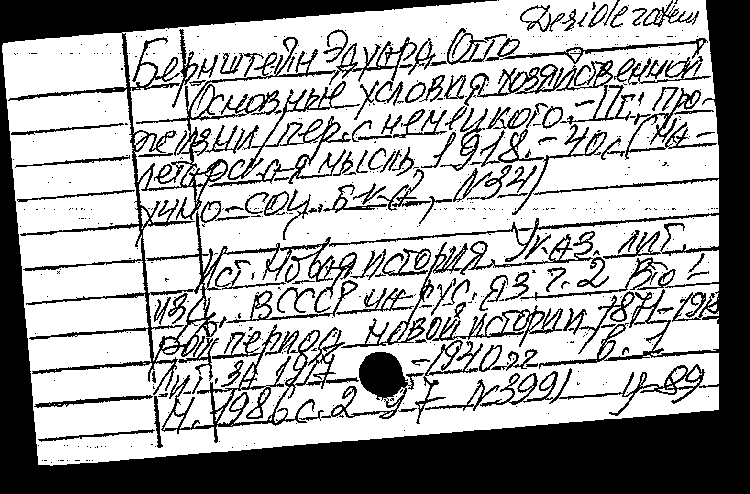 Desideratum
Бернштейн Эдуард Отто
Основные условия хозяйственной
жизни/пер.с немецкого.-Пг.: Про-
летарская мысль, 1918.-40с.(На-
учно-соц. б-ка, N34)
Ист.:Новая история. Указ. лит.
изд. в СССР на рус. яз. ч.2 Вто-
рой период новой истории, 1871-1918
Лит. за 1917 -1940гг В.1
М.1986 с.2 7 N3991 У-89